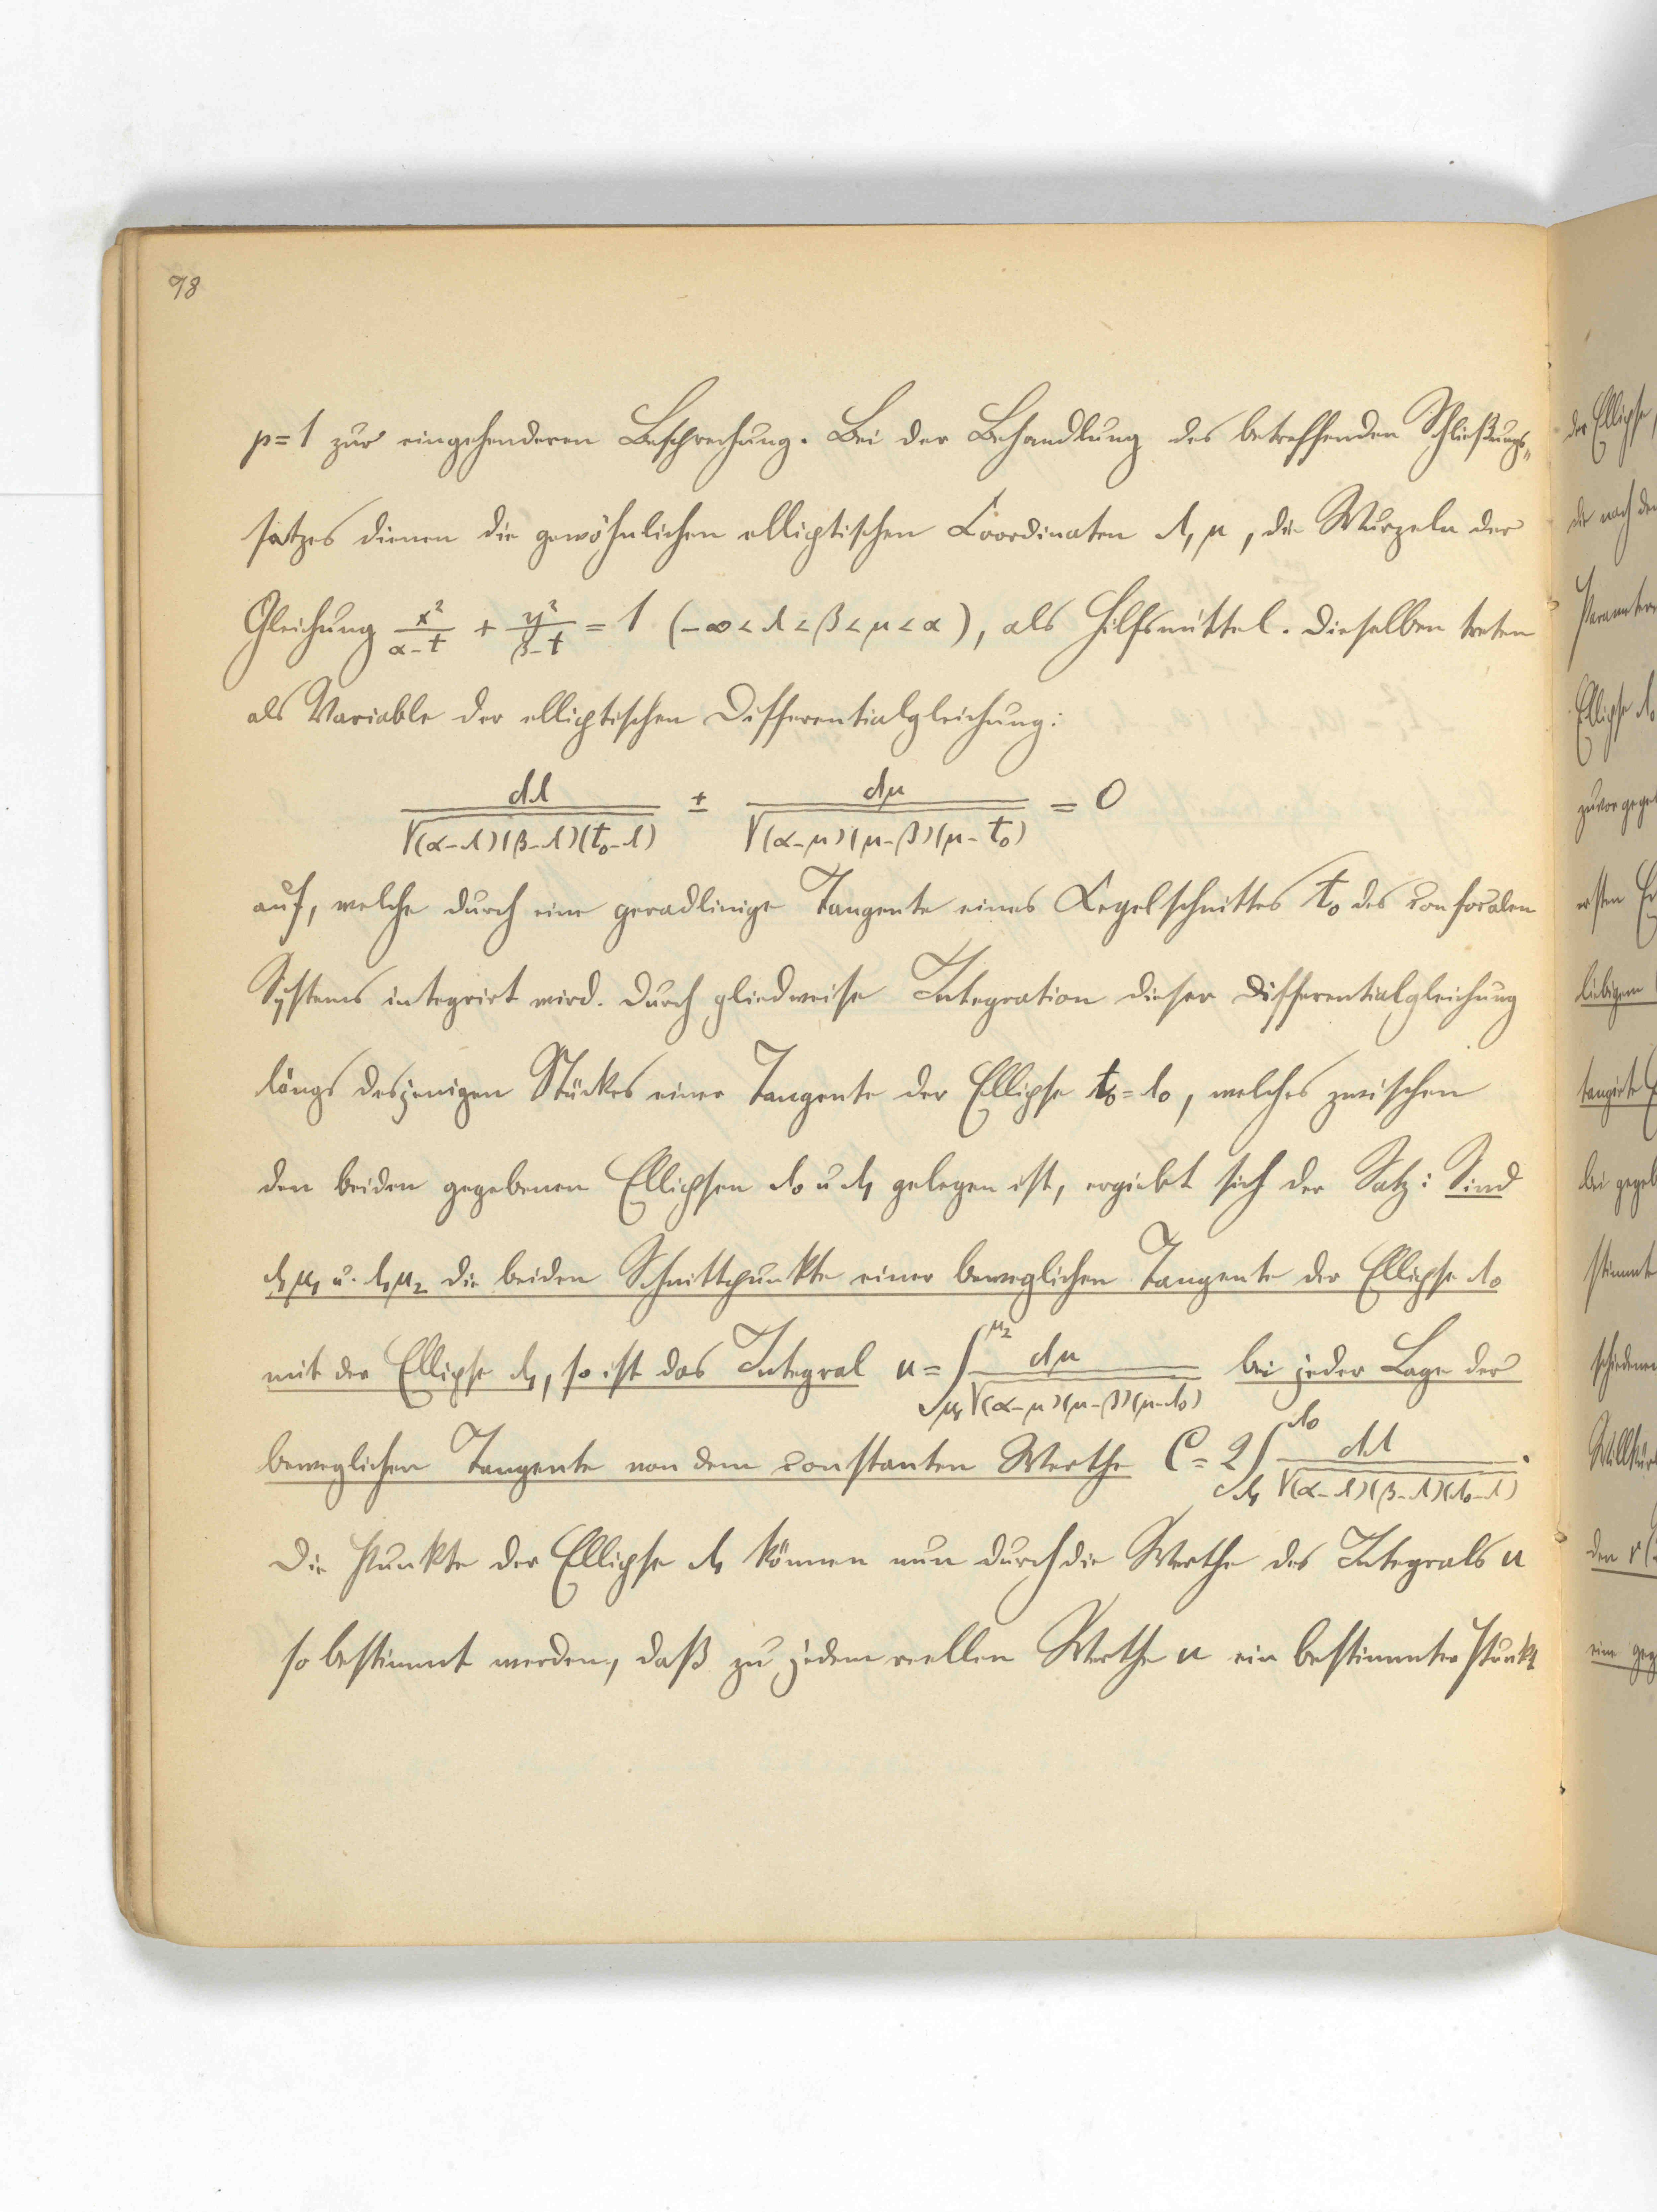 98
p=1 zur eingehenderen Besprechung. Bei der Behandlung des betreffenden Schließungs„
satzes dienen die gewöhnlichen elliptischen Coordinaten λ, μ, die Wurzeln der
Gleichung x²/(α-t) + y²/(β-t) = 1 (-∞<λ<β<μ<α), als Hilfsmittel. Dieselben treten
als Variable der elliptischen Differentialgleichung:
dλ/√(α-λ)(β-λ)(t₀-λ) ± dμ/√(α-μ)(μ-β)(μ-t₀) = 0
auf, welche durch eine geradlinige Tangente eines Kegelschnittes t₀ des confocalen
Systems integrirt wird. Durch gliedweise Integration dieser Differentialgleichung
längs desjenigen Stückes einer Tangente der Ellipse t₀=λ₀, welches zwischen
den beiden gegebenen Ellipsen λ₀ u λ₁ gelegen ist, ergiebt sich der Satz: Sind
λ₁μ₁ u. λ₁μ₂ die beiden Schnittpunkte einer beweglichen Tangente der Ellipse λ₀
mit der Ellipse λ₁, so ist das Integral u = ∫_{μ₁}^{μ₂} dμ/√(α-μ)(μ-β)(μ-λ₀) bei jeder Lage der
beweglichen Tangente von dem constanten Werthe C = 2∫_{λ₁}^{λ₀} dλ/√(α-λ)(β-λ)(λ₀-λ).
Die Punkte der Ellipse λ₁ können nun durch die Werthe des Integrals u
so bestimmt werden, daß zu jedem reellen Werthe u ein bestimmter Punkt
der Ellipse,
die nach den
Ellipse λ₀
ersten
tangirte
bei gegeb
stimmt
schiedenen
eine geg